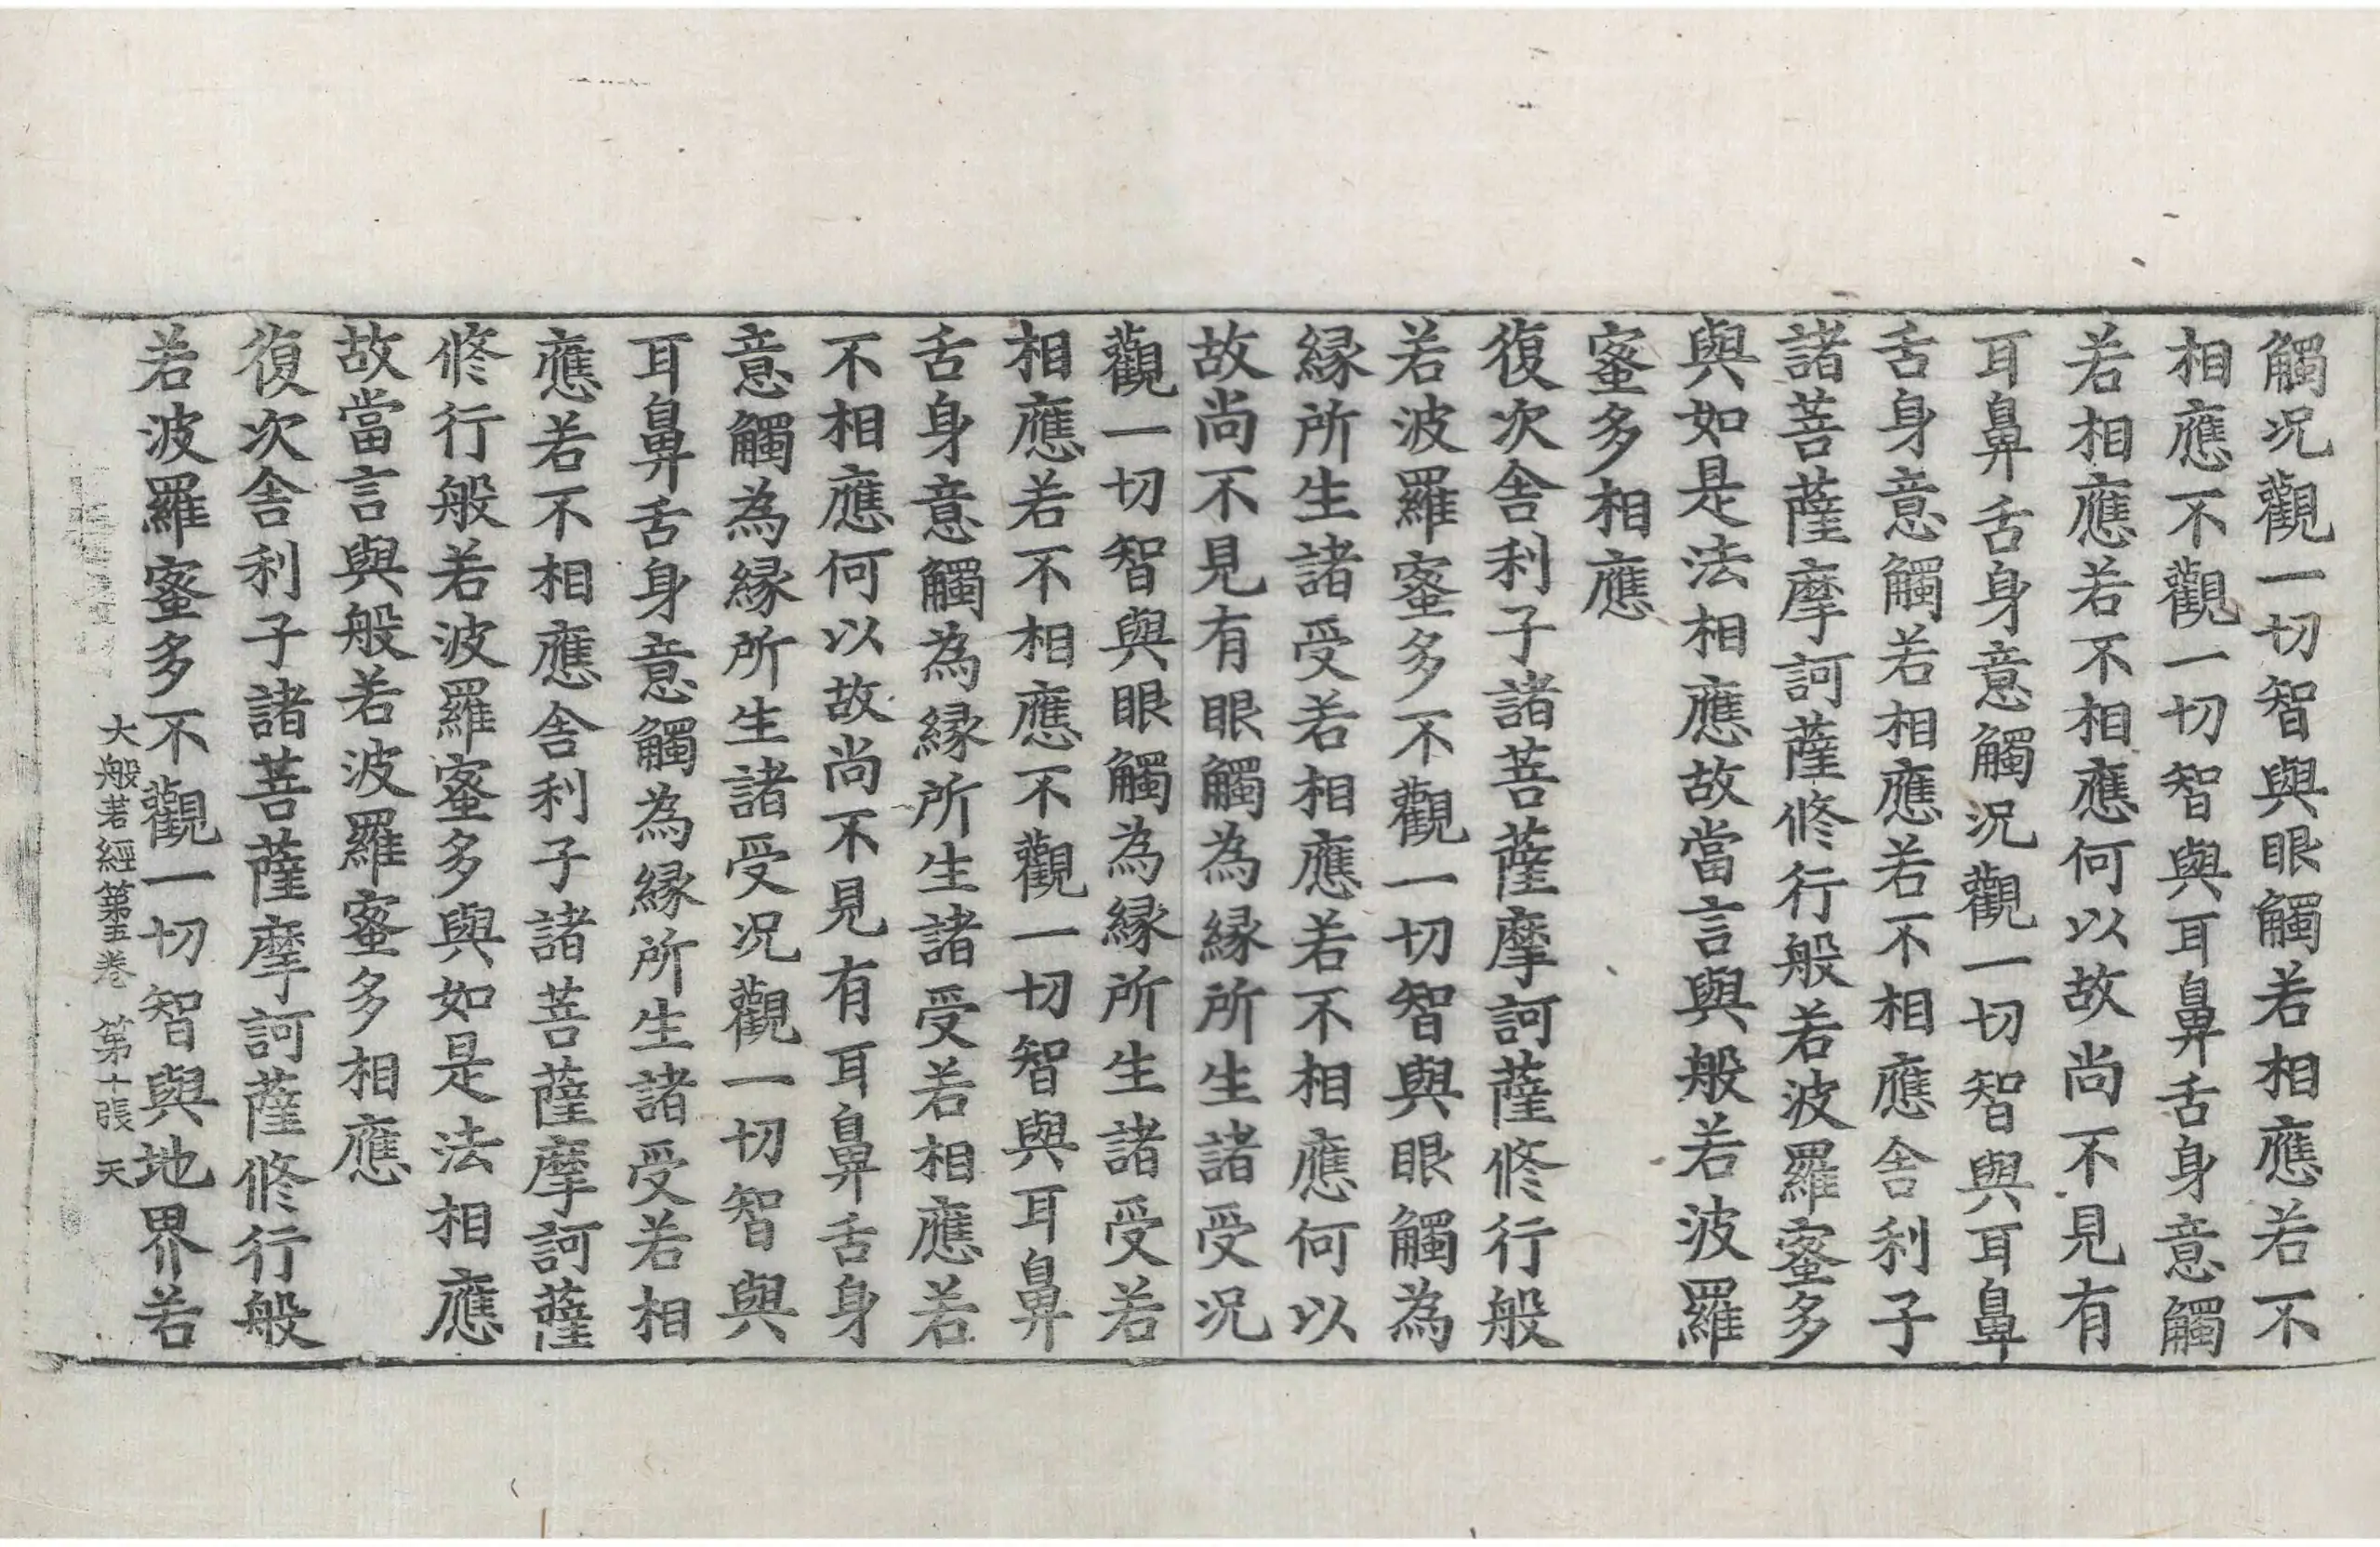 觸况觀一切智與眼觸若相應若不
相應不觀一切智與耳鼻舌身意觸
若相應若不相應何以故尚不見有
耳鼻舌身意觸况觀一切智與耳鼻
舌身意觸若相應若不相應舎利子
諸菩薩摩訶薩修行般若波羅蜜多
與如是法相應故當言與般若波羅
蜜多相應
復次舎利子諸菩薩摩訶薩修行般
若波羅蜜多不觀一切智與眼觸為
縁所生諸受若相應若不相應何以
故尚不見有眼觸為縁所生諸受况
觀一切智與眼觸為縁所生諸受若
相應若不相應不觀一切智與耳鼻
舌身意觸為縁所生諸受若相應若
不相應何以故尚不見有耳鼻舌身
意觸為縁所生諸受况觀一切智與
耳鼻舌身意觸為縁所生諸受若相
應若不相應舎利子諸菩薩摩訶薩
修行般若波羅蜜多與如是法相應
故當言與般若波羅蜜多相應
復次舎利子諸菩薩摩訶薩修行般
若波羅蜜多不觀一切智與地界若
大般若經第五卷 第十張 天